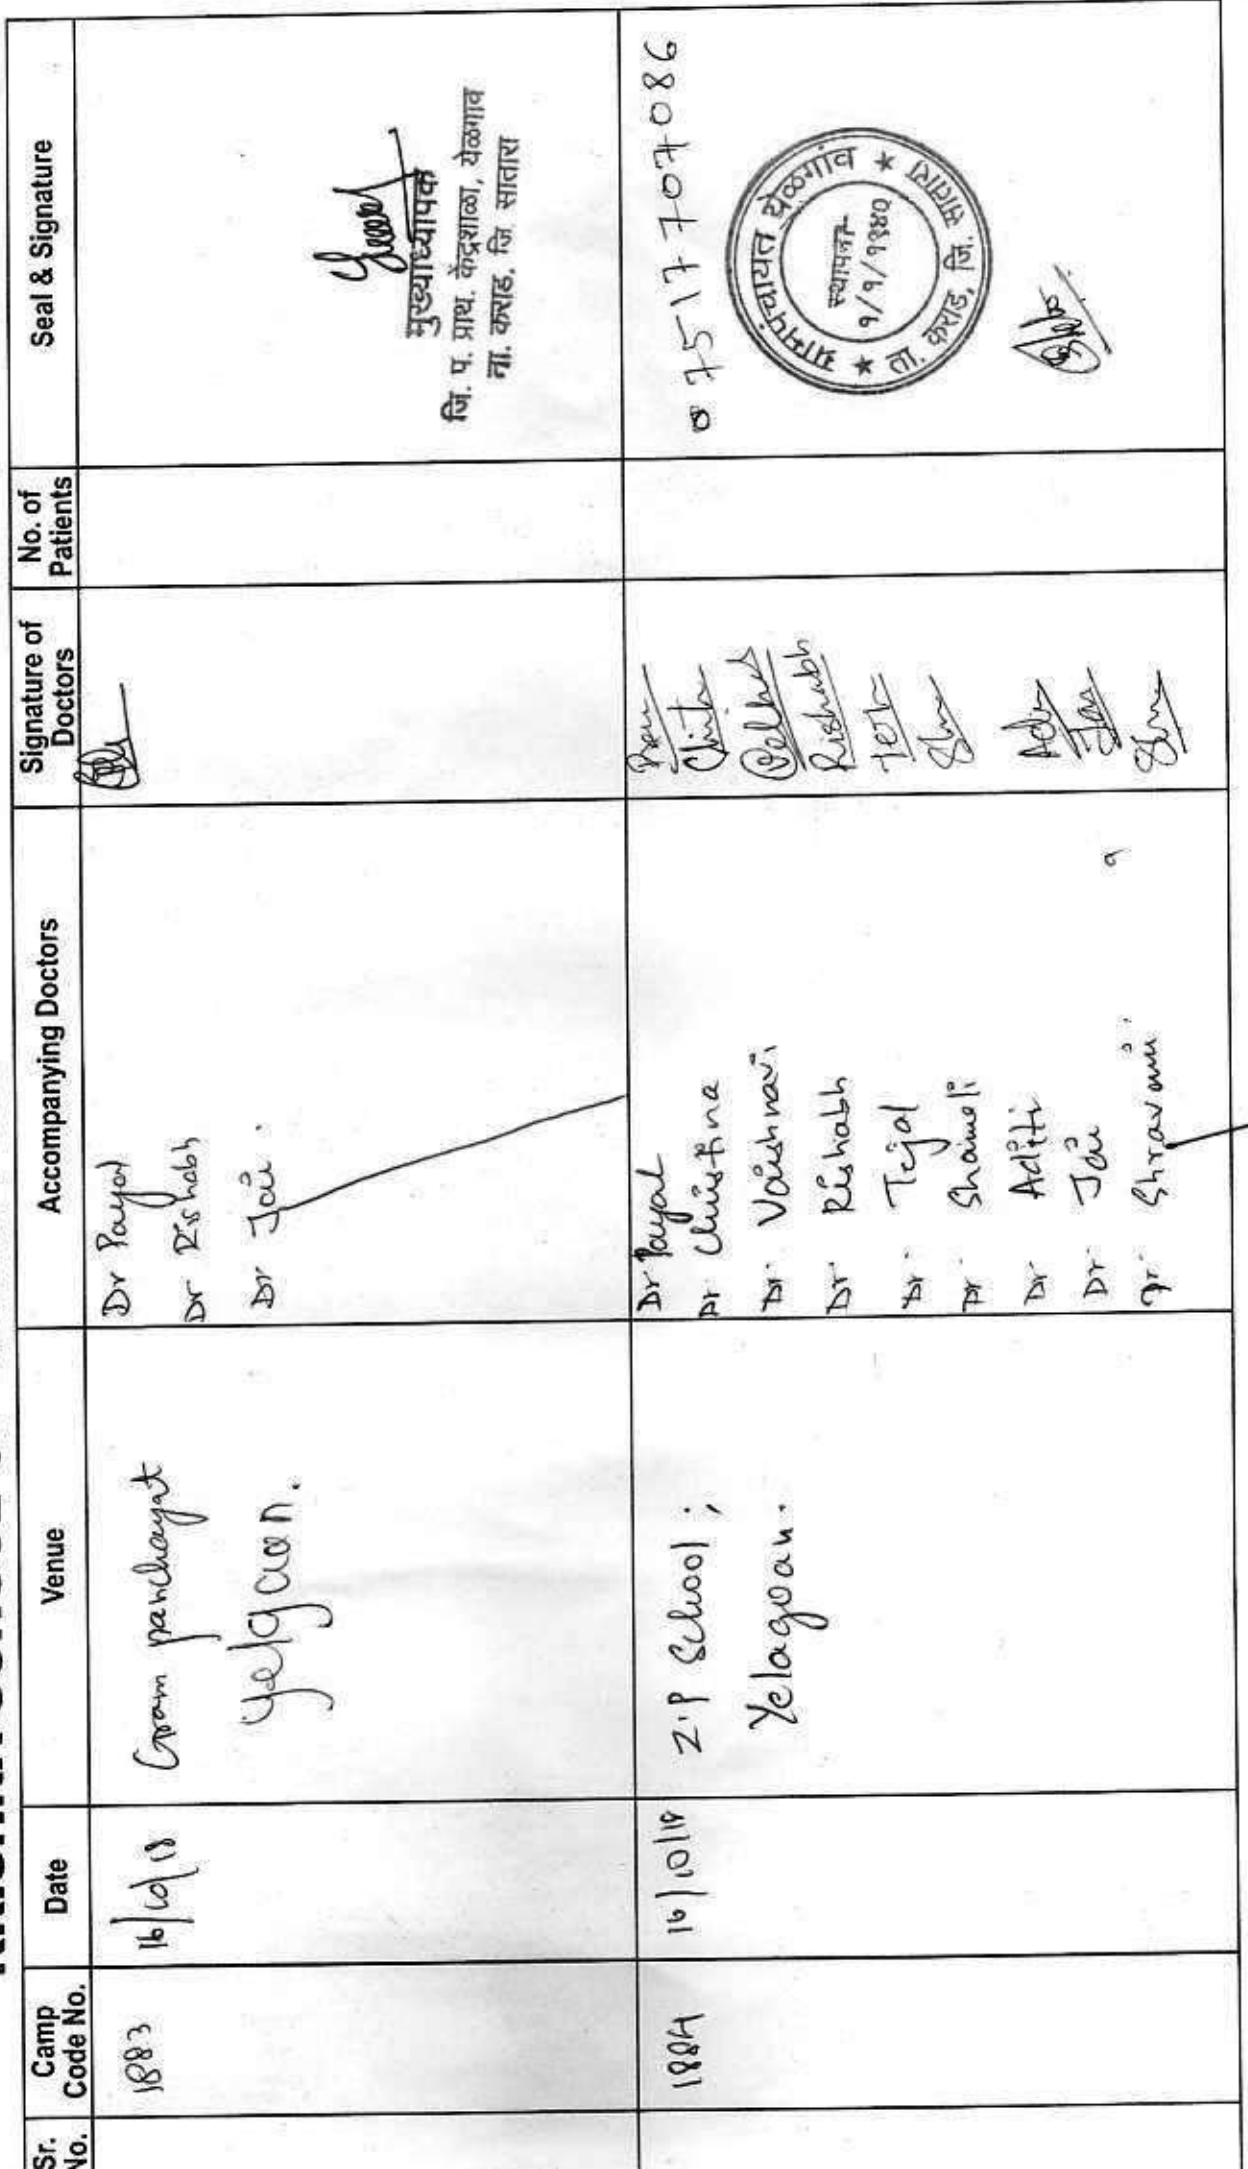 Sr. No.
Camp Code No.
Date
Venue
Accompanying Doctors
Signature of Doctors
No. of Patients
Seal & Signature
1883
16/10/18
Gram panchayat
yelgaon.
Dr Payal
Dr Rishabh
Dr Jai.
मुख्याध्यापक
जि. प. प्राथ. केंद्रशाळा, येळगाव
ता. कराड, जि. सातारा
1884
16/10/18
Z.P School ;
Yelagoan.
Dr Payal
Dr. Christina
Dr. Vaishnavi
Dr. Rishabh
Dr. Tejal
Dr. Shamoli
Dr Aditi
Dr. Jai
Dr. Shravani.
Rishabh
07517707086
ग्रामपंचायत येळगांव
स्थापना-
१/१/१९४०
ता. कराड, जि. सातारा